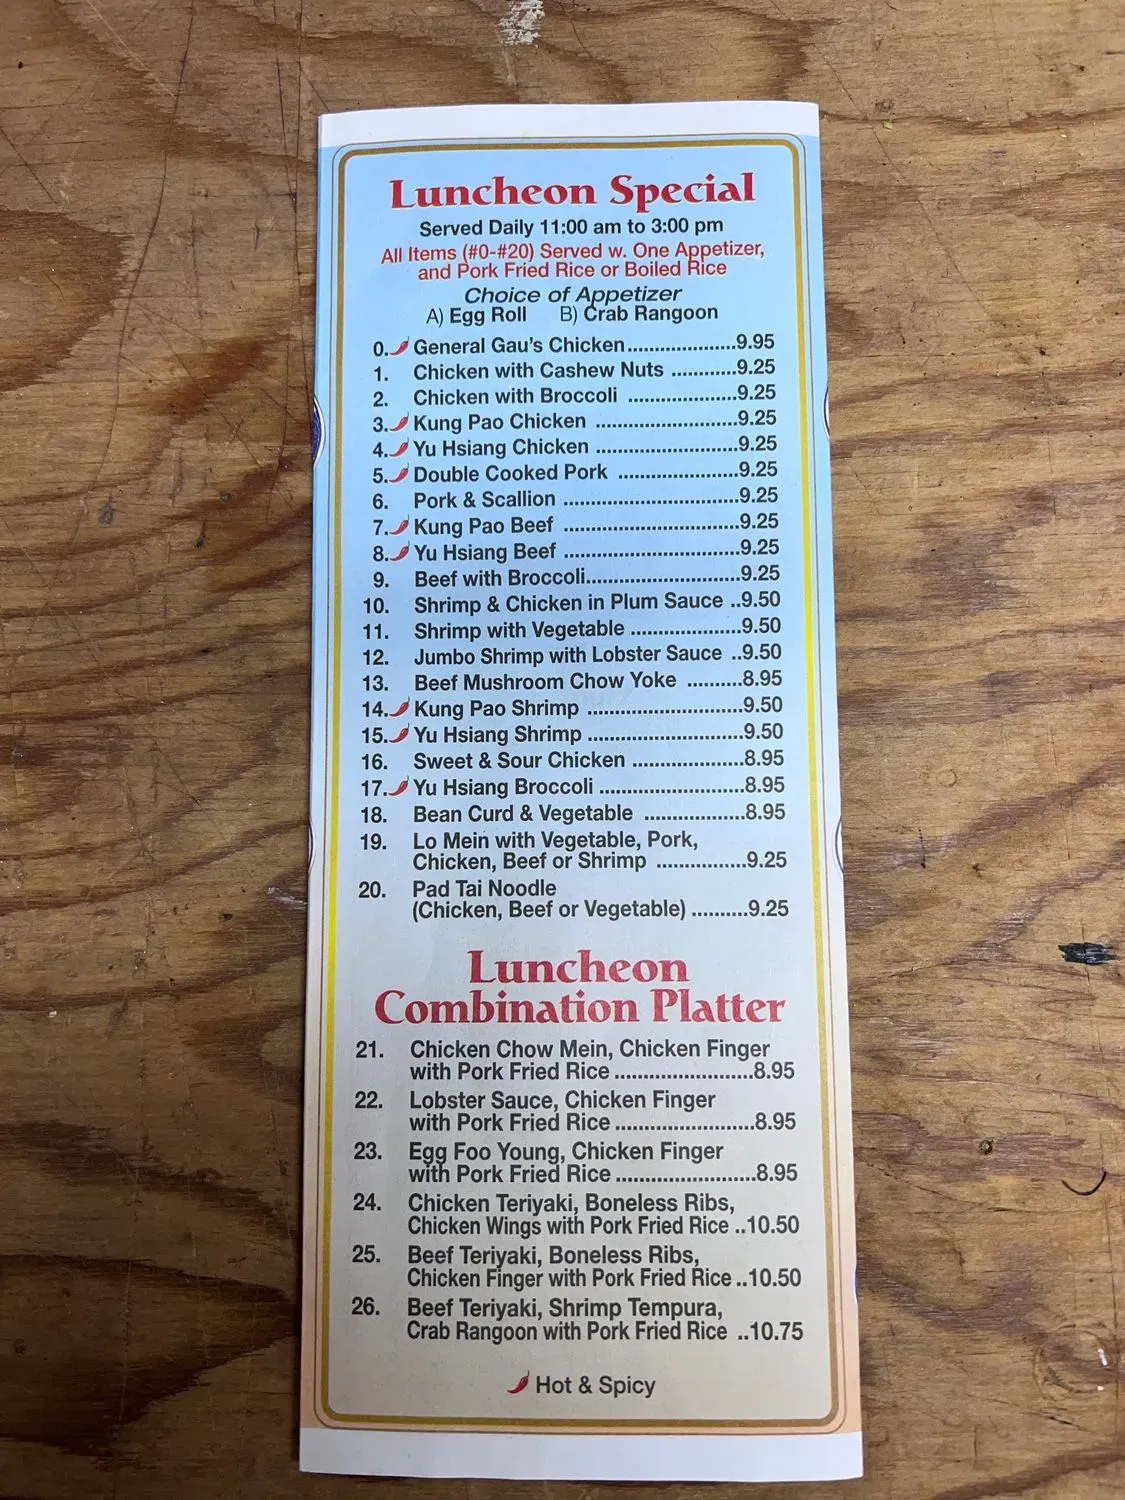 Luncheon Special
Served Daily 11:00 am to 3:00 pm
All Items (#0-#20) Served w. One Appetizer,
and Pork Fried Rice or Boiled Rice
Choice of Appetizer
A) Egg Roll B) Crab Rangoon
0. General Gau's Chicken....................9.95
1. Chicken with Cashew Nuts ............9.25
2. Chicken with Broccoli ....................9.25
3. Kung Pao Chicken ..........................9.25
4. Yu Hsiang Chicken ..........................9.25
5. Double Cooked Pork ......................9.25
6. Pork & Scallion ................................9.25
7. Kung Pao Beef ................................9.25
8. Yu Hsiang Beef ................................9.25
9. Beef with Broccoli............................9.25
10. Shrimp & Chicken in Plum Sauce ..9.50
11. Shrimp with Vegetable ....................9.50
12. Jumbo Shrimp with Lobster Sauce ..9.50
13. Beef Mushroom Chow Yoke ..........8.95
14. Kung Pao Shrimp ............................9.50
15. Yu Hsiang Shrimp ............................9.50
16. Sweet & Sour Chicken ....................8.95
17. Yu Hsiang Broccoli ..........................8.95
18. Bean Curd & Vegetable ..................8.95
19. Lo Mein with Vegetable, Pork,
Chicken, Beef or Shrimp ................9.25
20. Pad Tai Noodle
(Chicken, Beef or Vegetable) ..........9.25
Luncheon
Combination Platter
21. Chicken Chow Mein, Chicken Finger
with Pork Fried Rice ........................8.95
22. Lobster Sauce, Chicken Finger
with Pork Fried Rice ........................8.95
23. Egg Foo Young, Chicken Finger
with Pork Fried Rice ........................8.95
24. Chicken Teriyaki, Boneless Ribs,
Chicken Wings with Pork Fried Rice ..10.50
25. Beef Teriyaki, Boneless Ribs,
Chicken Finger with Pork Fried Rice ..10.50
26. Beef Teriyaki, Shrimp Tempura,
Crab Rangoon with Pork Fried Rice ..10.75
Hot & Spicy